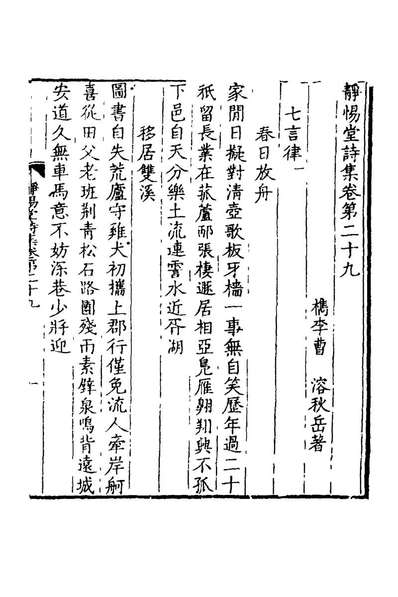 靜惕堂詩集卷第二十九
檇李曹　溶秋岳著
七言律
春日放舟
家閒日擬對清壺歌板牙檣一事無自笑歷年過二十
秪留長業在菰蘆鄏張棲遯居相亞鳧雁翱翔興不孤
下邑自天分樂土流連雲水近胥湖
移居雙溪
圖書自失荒廬守雞犬初攜上郡行僅免流人牽岸舸
喜從田父老班荆青松石路圍殘雨素壁泉鳴背遠城
安道久無車馬意不妨深巷少將迎
靜惕堂詩集卷第二十九
一